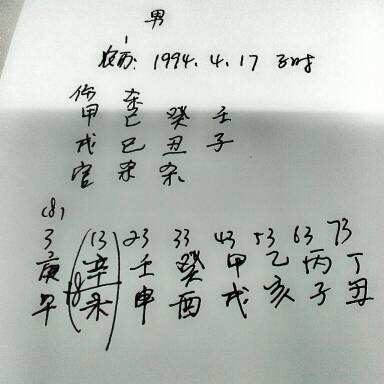 男
农历: 1994. 4. 17 子时
伤 杀
甲 己 癸 壬
戌 巳 丑 子
官 杀 杀
(8)
3 13 23 33 43 53 63 73
庚 辛 壬 癸 甲 乙 丙 丁
午 未 申 酉 戌 亥 子 丑